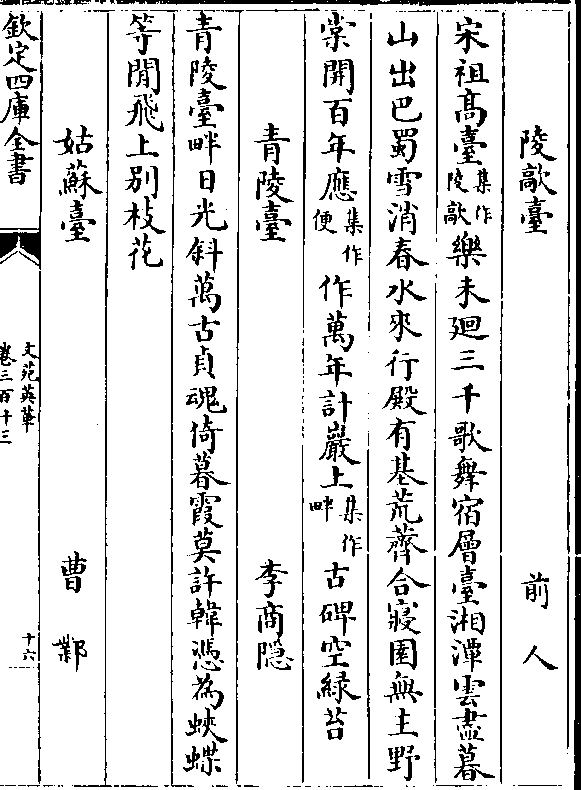 陵歊臺 前人
宋祖髙臺集作陵歊樂未廻三千歌舞宿層臺湘潭雲盡暮
山出巴蜀雪消春水來行殿有基荒薺合寢園無主野
棠開百年應集作便作萬年計巖上集作畔古碑空緑苔
青陵臺 李商隠
青陵臺畔日光斜萬古貞魂倚暮霞莫許韓憑為蛺蝶
等閒飛上别枝花
姑蘇臺 曹鄴
欽定四庫全書
文苑英華
卷三百十三
十六